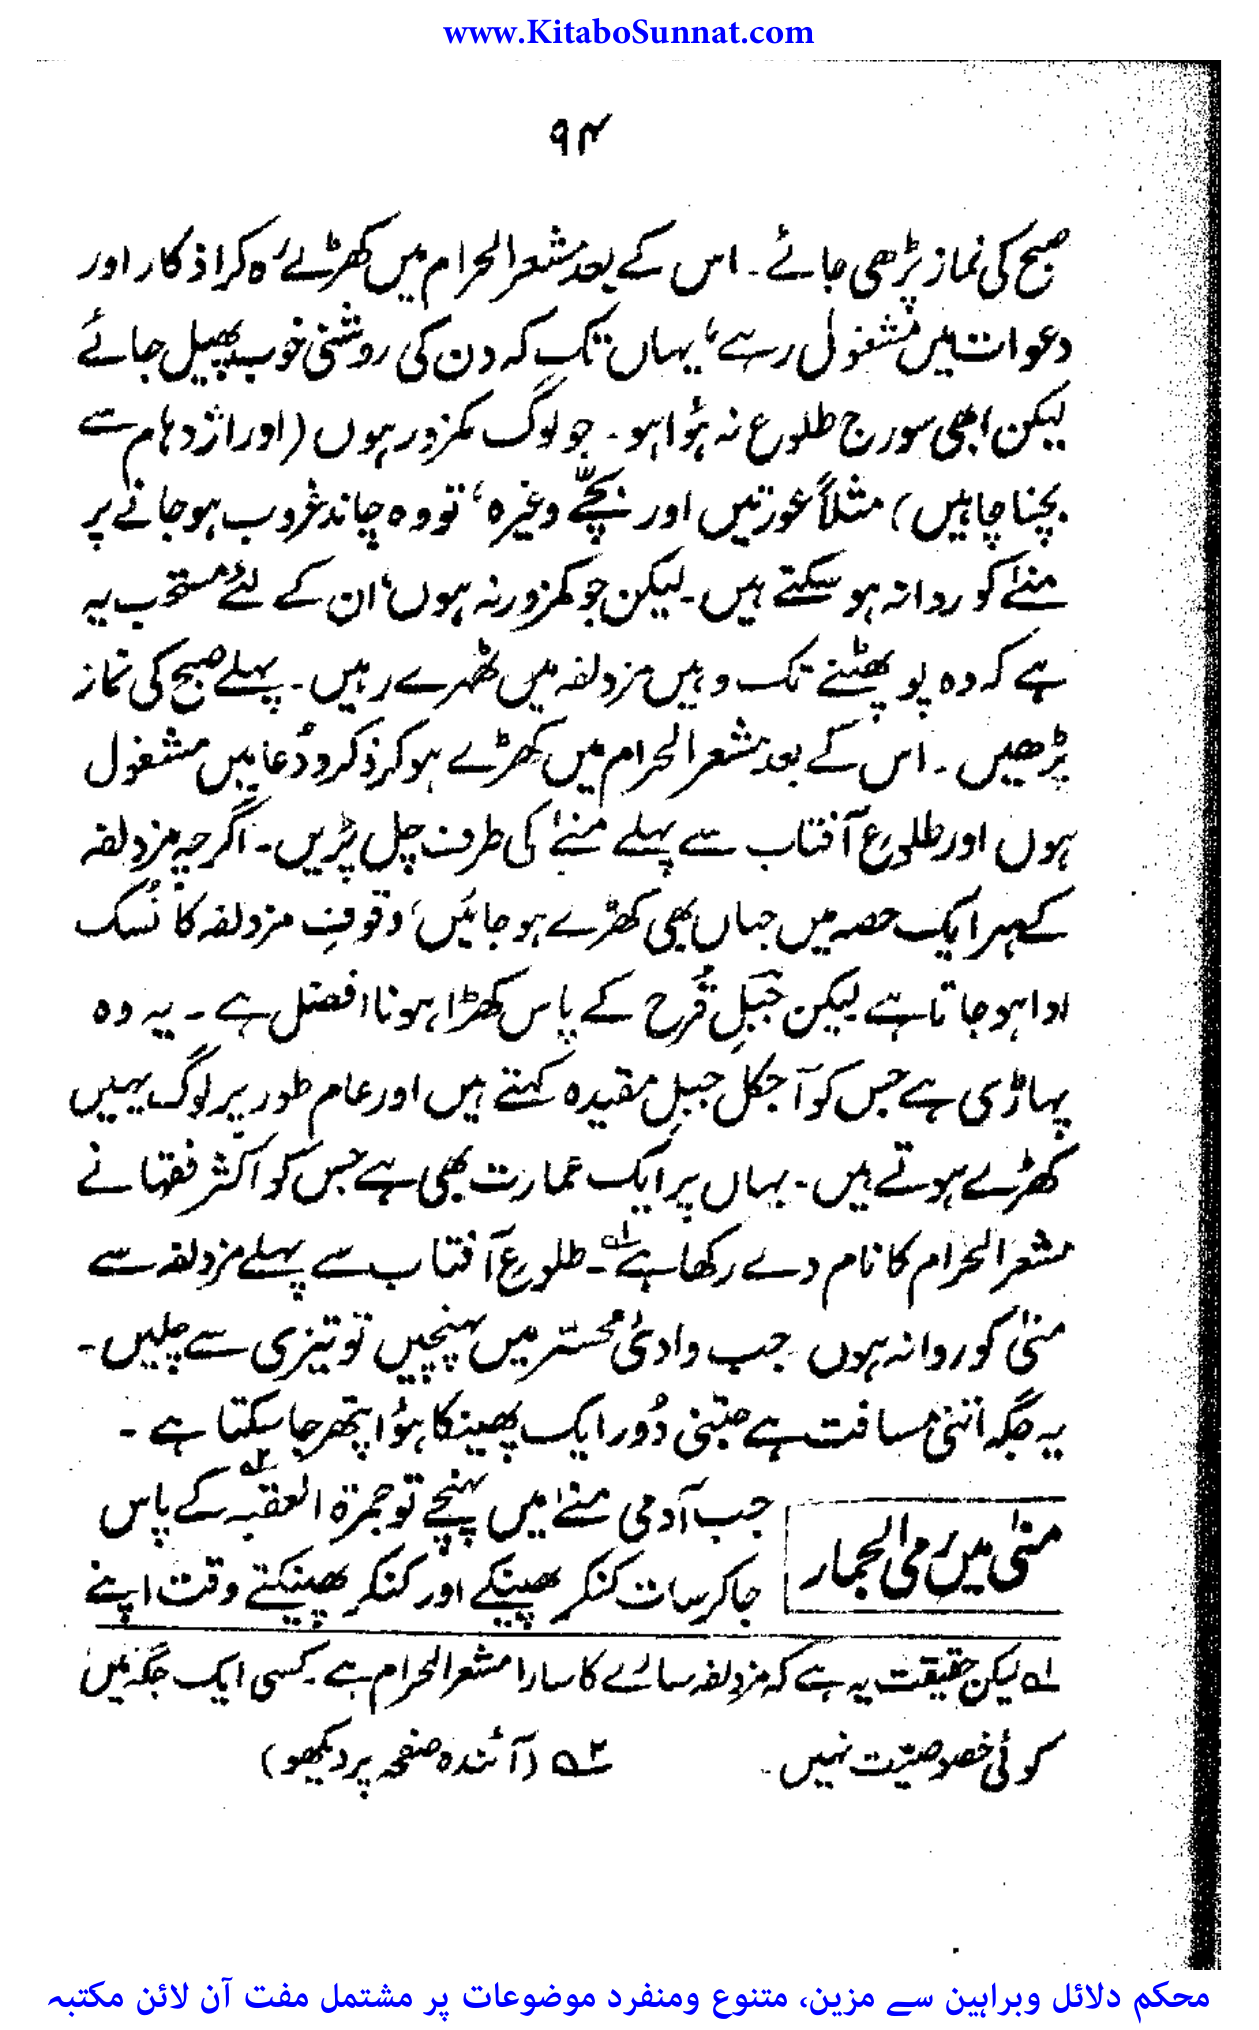 www.KitaboSunnat.com
۹۴
صبح کی نماز پڑھی جائے۔ اس کے بعد مشعر الحرام میں کھڑے رہ کر اذکار اور
دعوات میں مشغول رہے، یہاں تک کہ دن کی روشنی خوب پھیل جائے
لیکن ابھی سورج طلوع نہ ہوا ہو۔ جو لوگ کمزور ہوں (اور اژدہام سے
بچنا چاہیں) مثلاً عورتیں اور بچّے وغیرہ، تو وہ چاند غروب ہو جانے پر
منیٰ کو روانہ ہو سکتے ہیں۔ لیکن جو کمزور نہ ہوں، ان کے لئے مستحب یہ
ہے کہ وہ پو پھٹنے تک وہیں مزدلفہ میں ٹھہرے رہیں۔ پہلے صبح کی نماز
پڑھیں۔ اس کے بعد مشعر الحرام میں کھڑے ہو کر ذکر و دُعا میں مشغول
ہوں اور طلوعِ آفتاب سے پہلے منیٰ کی طرف چل پڑیں۔ اگرچہ مزدلفہ
کے ہر ایک حصہ میں جہاں بھی کھڑے ہو جائیں، وقوفِ مزدلفہ کا نُسک
ادا ہو جاتا ہے لیکن جَبَلِ قُزح کے پاس کھڑا ہونا افضل ہے۔ یہ وہ
پہاڑی ہے جس کو آجکل جبلِ مقیدہ کہتے ہیں اور عام طور پر لوگ یہیں
کھڑے ہوتے ہیں۔ یہاں پر ایک عمارت بھی ہے جس کو اکثر فقہا نے
مشعر الحرام کا نام دے رکھا ہے ۱؎۔ طلوعِ آفتاب سے پہلے مزدلفہ سے
منیٰ کو روانہ ہوں جب وادیٔ محسّر میں پہنچیں تو تیزی سے چلیں۔
یہ جگہ اتنی مسافت ہے جتنی دُور ایک پھینکا ہوا پتھر جا سکتا ہے۔
منیٰ میں رمی الجمار
جب آدمی منیٰ میں پہنچے تو جمرۃ العقبہ ۲؎ کے پاس
جا کر سات کنکر پھینکے اور کنکر پھینکتے وقت اپنے
۱؎ لیکن حقیقت یہ ہے کہ مزدلفہ سارے کا سارا مشعر الحرام ہے۔ کسی ایک جگہ میں
کوئی خصوصیّت نہیں۔ ۲؎ (آئندہ صفحہ پر دیکھو)
محکم دلائل وبراہین سے مزین، متنوع ومنفرد موضوعات پر مشتمل مفت آن لائن مکتبہ